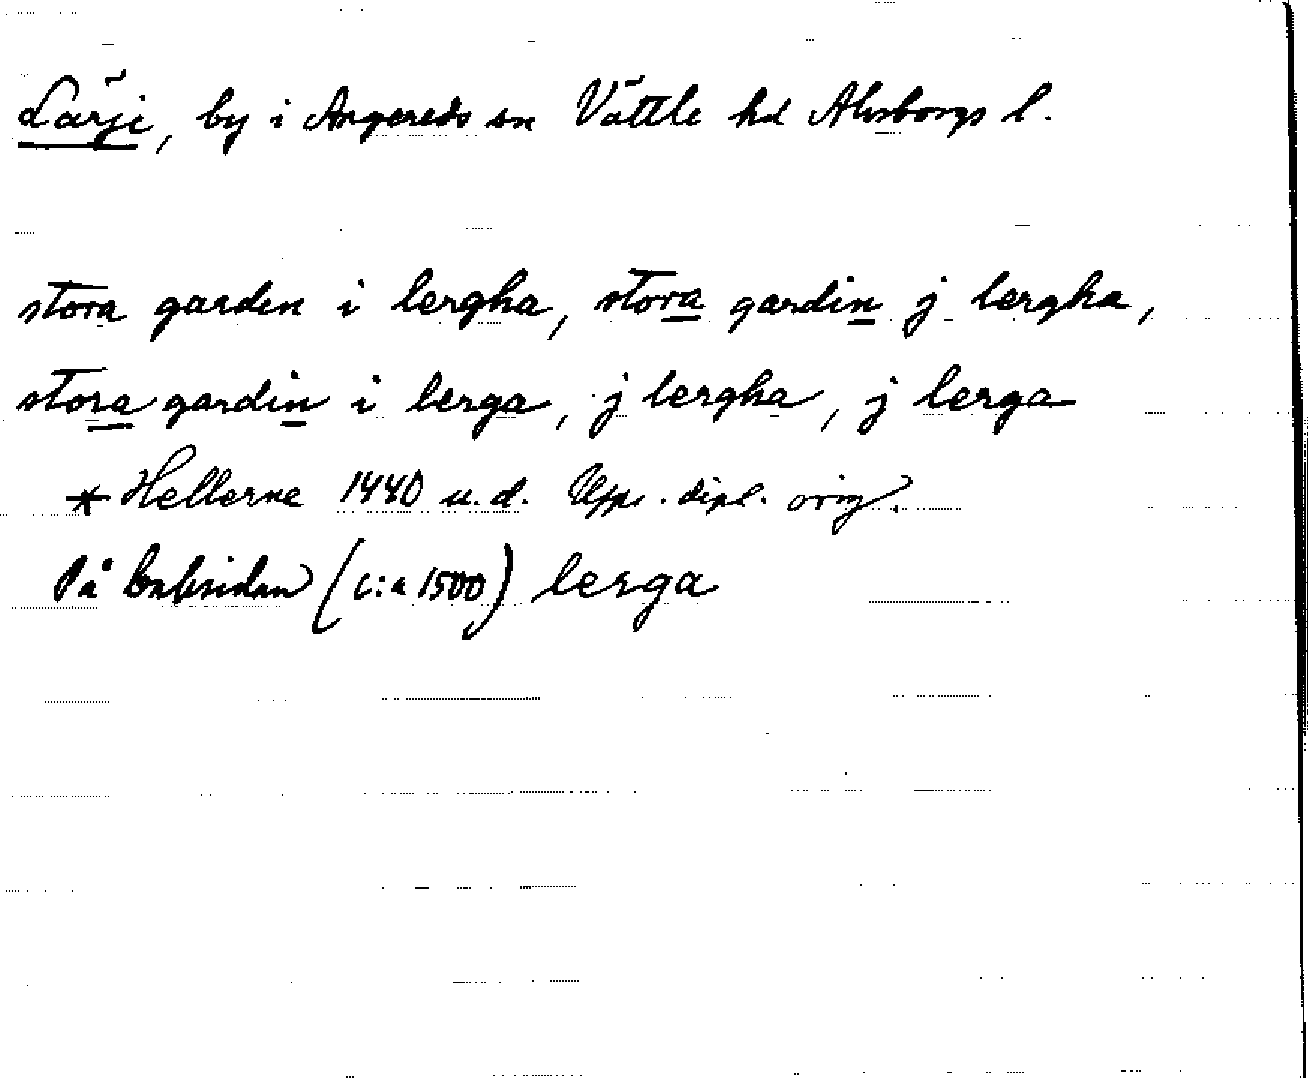 Lärje, by i Angereds sn Vättle hd Älvsborgs l.
stora garden i lergha, stora gardin j lergha,
stora gardin i lerga, j lergha, j lerga
* Hellerne 1440 u.d. Upps. dipl. orig.
På baksidan (c:a 1500) lerga